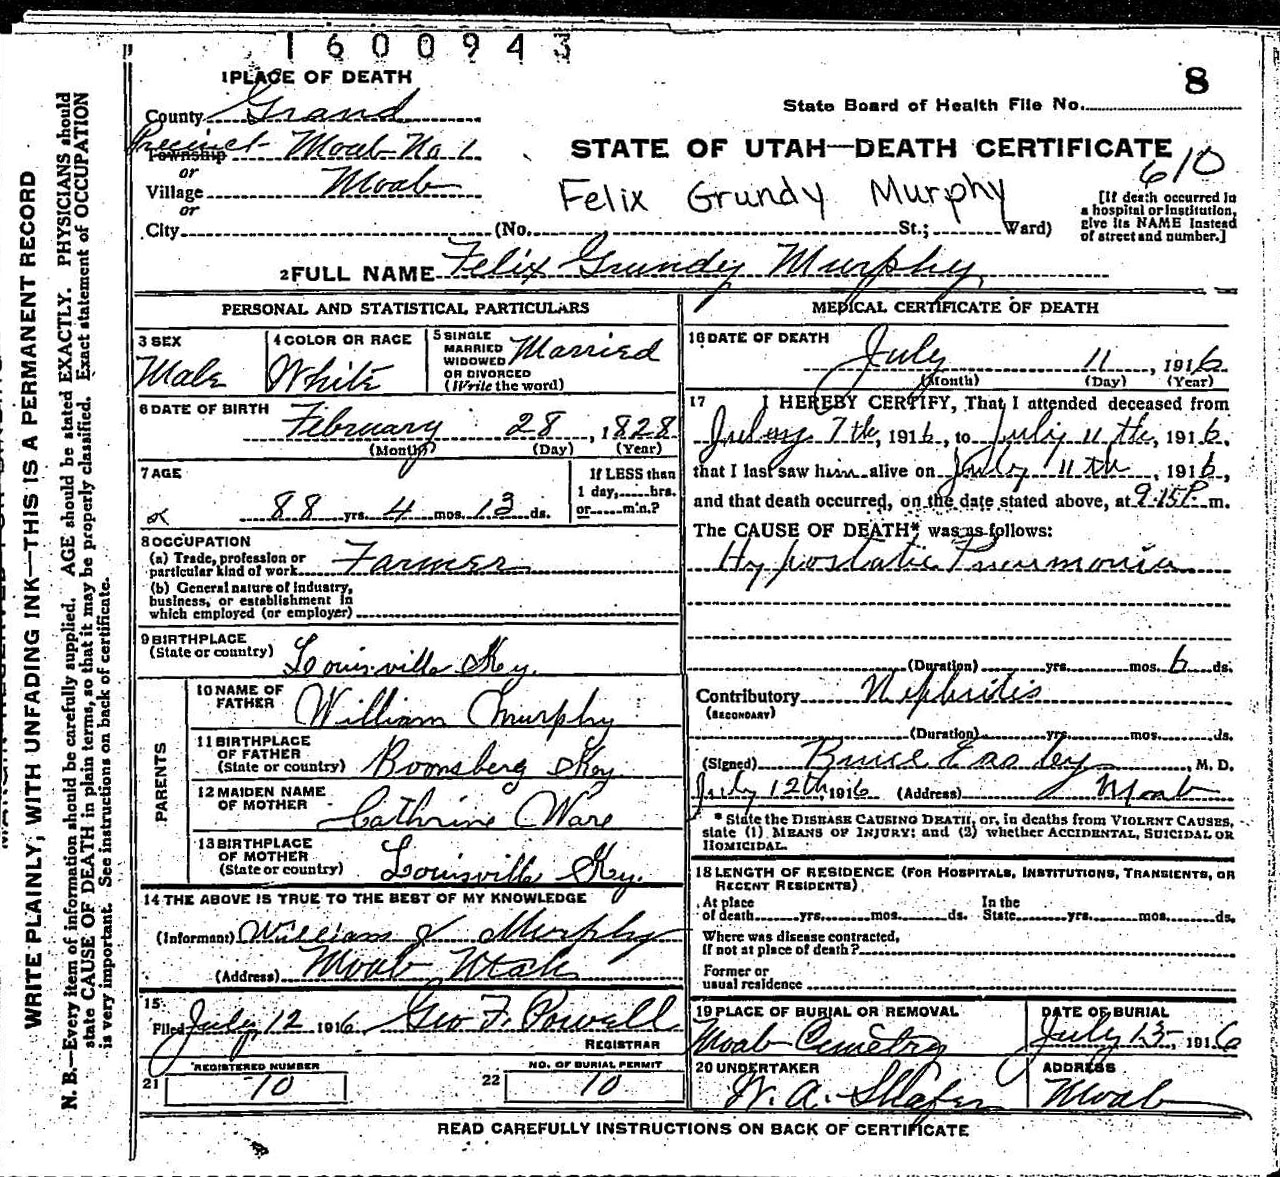 1600943
1 PLACE OF DEATH
8
County Grand
State Board of Health File No.
Precinct Moab No 1
Township
or
STATE OF UTAH—DEATH CERTIFICATE
610
Village Moab
Felix Grundy Murphy
or
City (No. St.; Ward)
[If death occurred in
a hospital or institution,
give its NAME instead
of street and number.]
2 FULL NAME Felix Grundy Murphy
PERSONAL AND STATISTICAL PARTICULARS
3 SEX
Male
4 COLOR OR RACE
White
5 SINGLE
MARRIED
WIDOWED
OR DIVORCED
(Write the word)
Married
6 DATE OF BIRTH
February 28, 1828
(Month) (Day) (Year)
7 AGE
88 yrs. 4 mos. 13 ds.
If LESS than
1 day, hrs.
or min.?
8 OCCUPATION
(a) Trade, profession or
particular kind of work Farmer
(b) General nature of industry,
business, or establishment in
which employed (or employer)
9 BIRTHPLACE
(State or country) Louisville Key.
PARENTS
10 NAME OF
FATHER William Murphy
11 BIRTHPLACE
OF FATHER
(State or country) Boonsberg Key
12 MAIDEN NAME
OF MOTHER Cathrine Ware
13 BIRTHPLACE
OF MOTHER
(State or country) Louisville Key.
14 THE ABOVE IS TRUE TO THE BEST OF MY KNOWLEDGE
(Informant) William J Murphy
(Address) Moab Utah
15
Filed July 12 1916 Geo F. Powell
REGISTRAR
REGISTERED NUMBER
21 10
NO. OF BURIAL PERMIT
22 10
MEDICAL CERTIFICATE OF DEATH
16 DATE OF DEATH
July 11, 1916
(Month) (Day) (Year)
17 I HEREBY CERTIFY, That I attended deceased from
July 7th, 1916, to July 11th, 1916,
that I last saw him alive on July 11th, 1916,
and that death occurred, on the date stated above, at 9.15 P. m.
The CAUSE OF DEATH* was as follows:
Hypostatic Pneumonia
(Duration) yrs. mos. 6 ds.
Contributory Nephritis
(SECONDARY)
(Duration) yrs. mos. ds.
(Signed) M. D.
July 12th, 1916 (Address) Moab
* State the DISEASE CAUSING DEATH, or, in deaths from VIOLENT CAUSES,
state (1) MEANS OF INJURY; and (2) whether ACCIDENTAL, SUICIDAL OR
HOMICIDAL.
18 LENGTH OF RESIDENCE (FOR HOSPITALS, INSTITUTIONS, TRANSIENTS, OR
RECENT RESIDENTS)
At place
of death yrs. mos. ds.
In the
State yrs. mos. ds.
Where was disease contracted,
if not at place of death?
Former or
usual residence
19 PLACE OF BURIAL OR REMOVAL
Moab Cemetry
DATE OF BURIAL
July 13, 1916
20 UNDERTAKER
W. A. Shafer
ADDRESS
Moab
READ CAREFULLY INSTRUCTIONS ON BACK OF CERTIFICATE
WRITE PLAINLY, WITH UNFADING INK—THIS IS A PERMANENT RECORD
N. B.—Every item of information should be carefully supplied. AGE should be stated EXACTLY. PHYSICIANS should
state CAUSE OF DEATH in plain terms, so that it may be properly classified. Exact statement of OCCUPATION
is very important. See instructions on back of certificate.